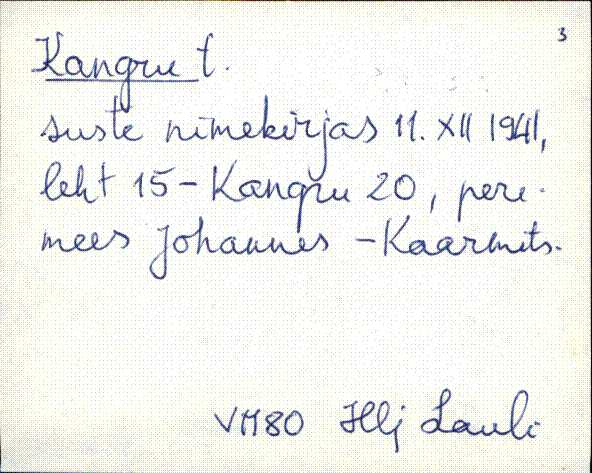 3
Kangru t.
suste nimekirjas 11. XII 1941,
leht 15 - Kangru 20, pere-
mees Johannes - Kaarmits.
VM80 Hlj Lauli